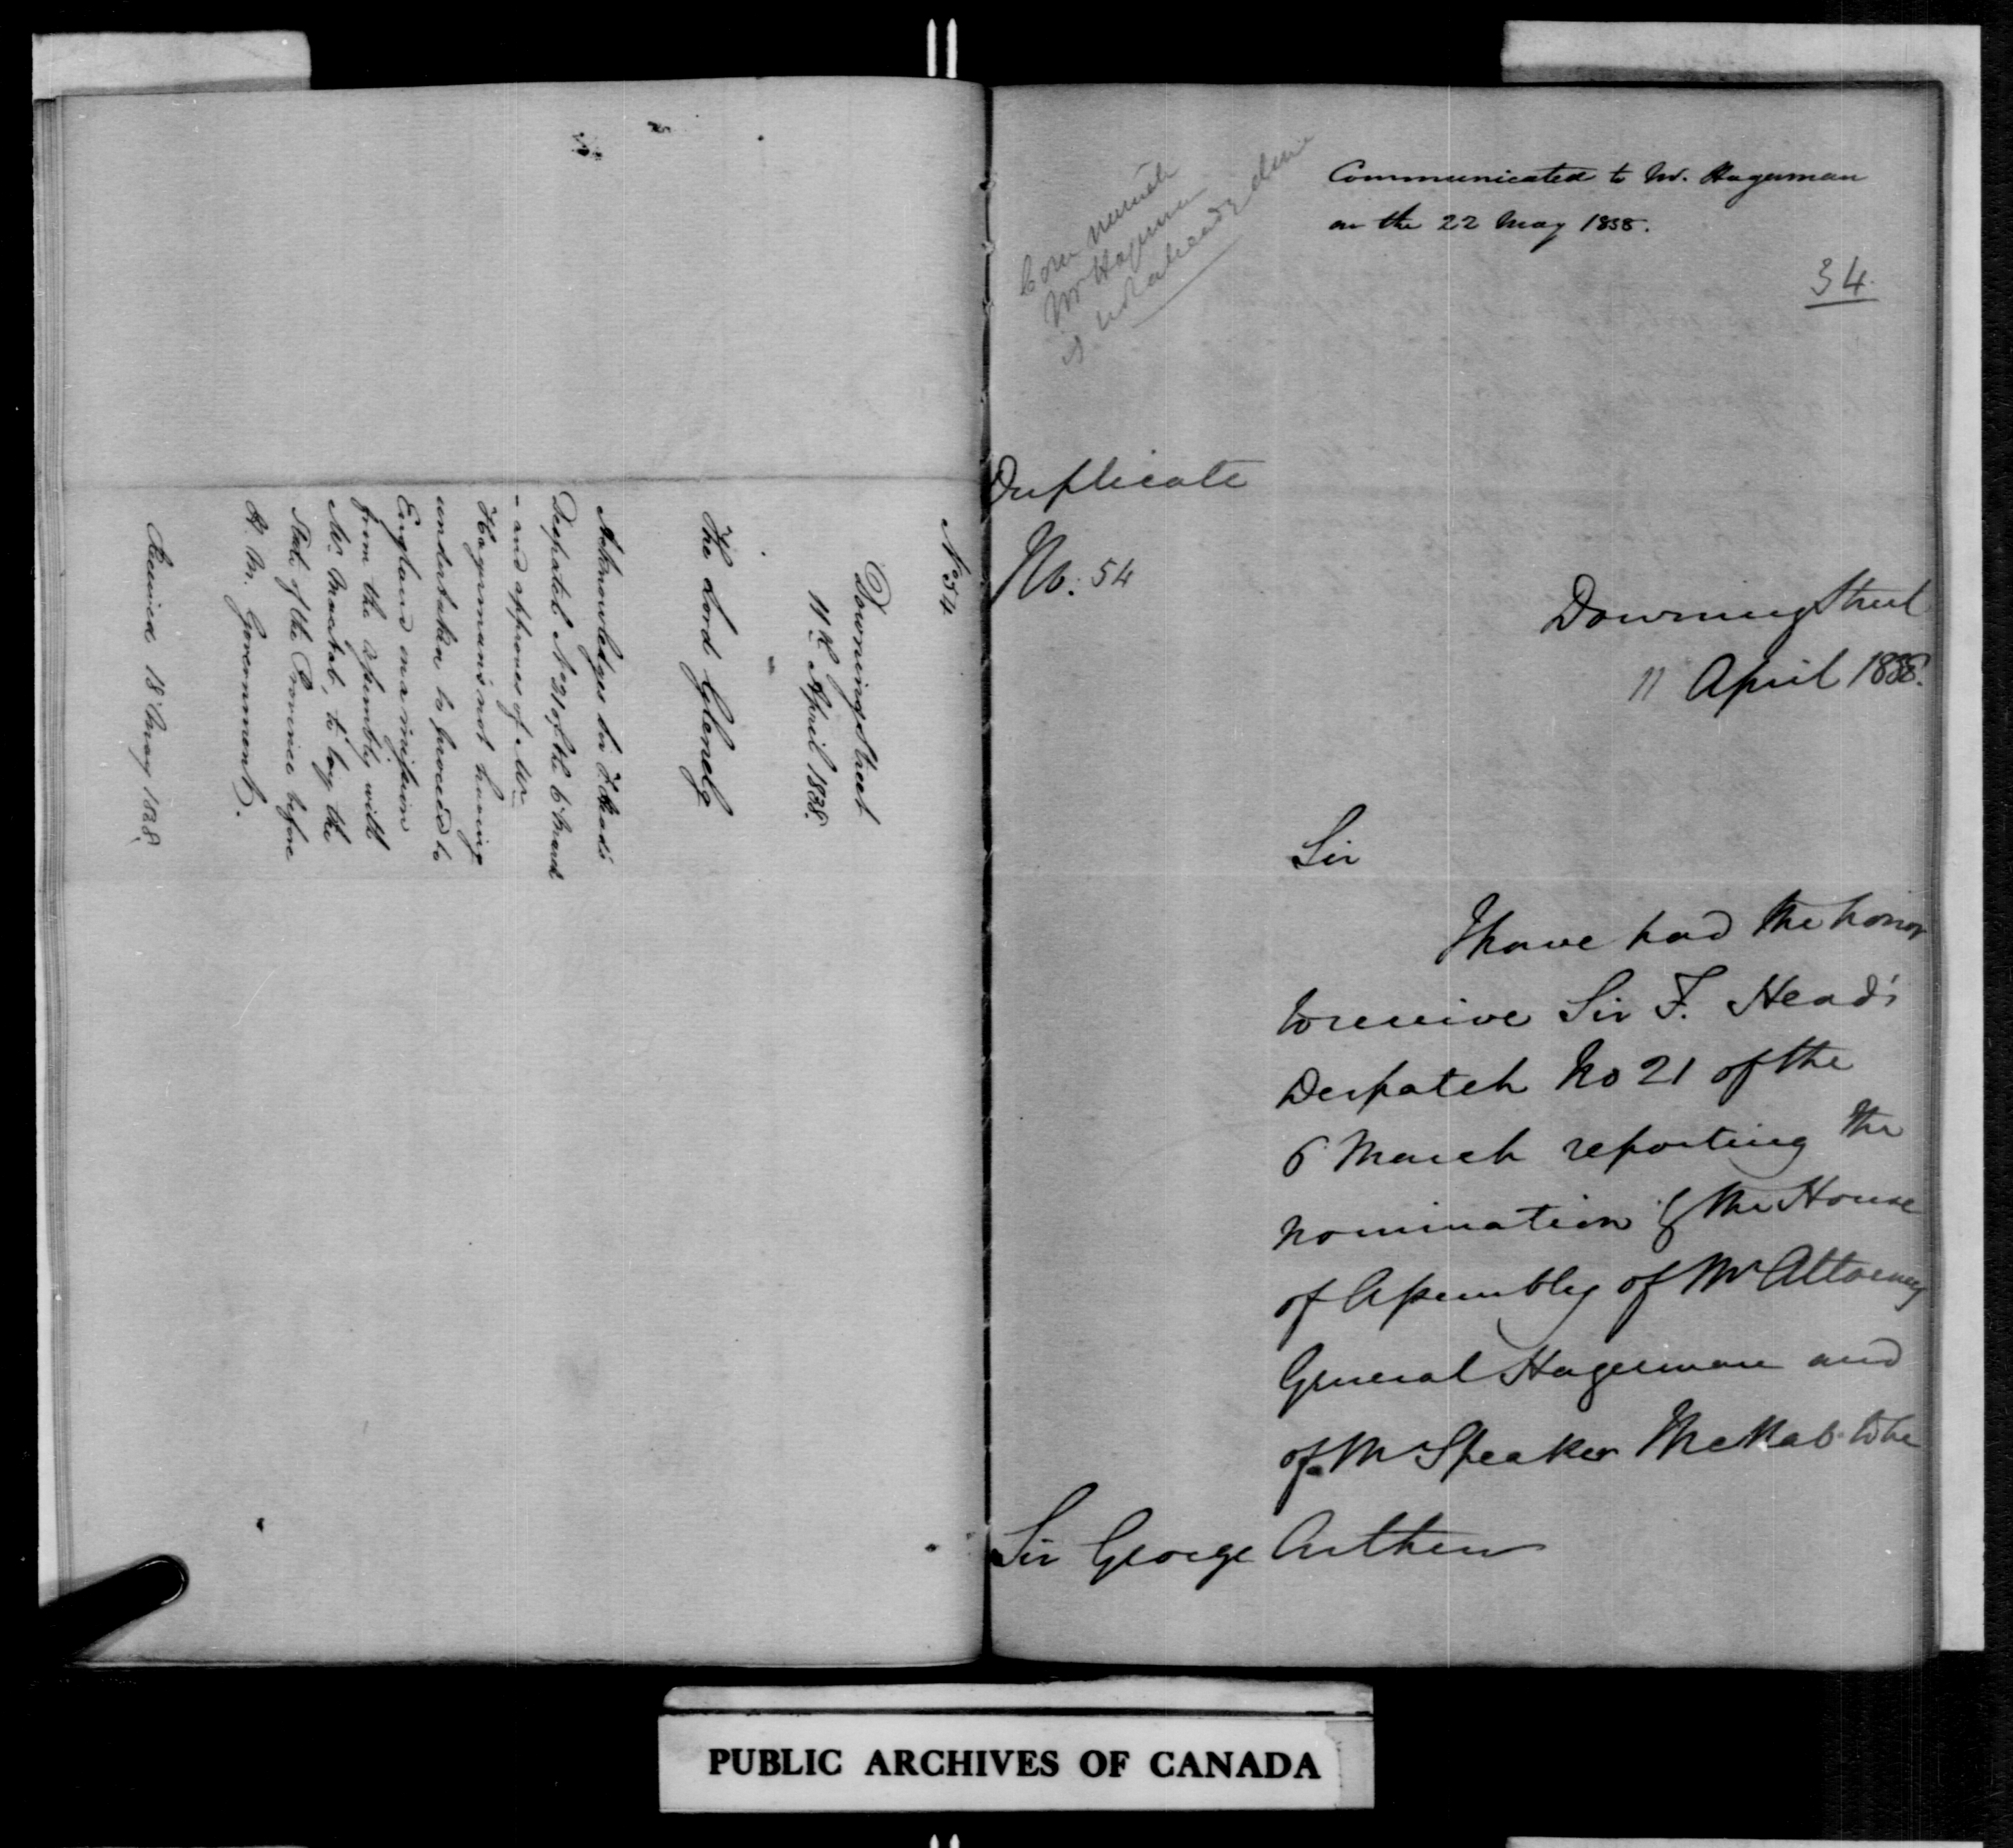 No 54
Downing Street
11th April 1838.
The Lord Glenelg
Acknowledges Sir F Head's
Despatch No 21 of the 6 March
- and approves of Mr
Hagerman's not having
undertaken to proceed to
England on a mission
from the Assembly with
Mr. MacNab, to lay the
State of the Province before
H. M. Government.
Received 18 May 1838
Communicated to Mr. Hagerman
on the 22 May 1838.
34
Mr Hagerman
if not already done
Duplicate
No. 54
Downing Street
11 April 1838.
Sir
I have had the honor
to receive Sir F. Head's
Despatch No 21 of the
6 March reporting the
nomination by the House
of Assembly of Mr Attorney
General Hagerman and
of Mr Speaker McNab to be
Sir George Arthur
PUBLIC ARCHIVES OF CANADA